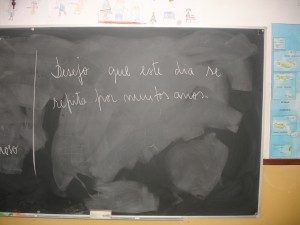 Desejo que este dia se
repita por muitos anos.